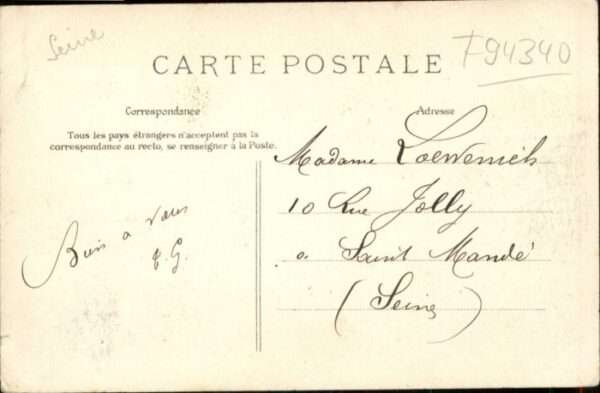 Seine
F94340
CARTE POSTALE
Correspondance
Adresse
Tous les pays étrangers n'acceptent pas la
correspondance au recto, se renseigner à la Poste.
Bien à vous
Madame
10 Rue Jolly
a Saint Mandé
(Seine)